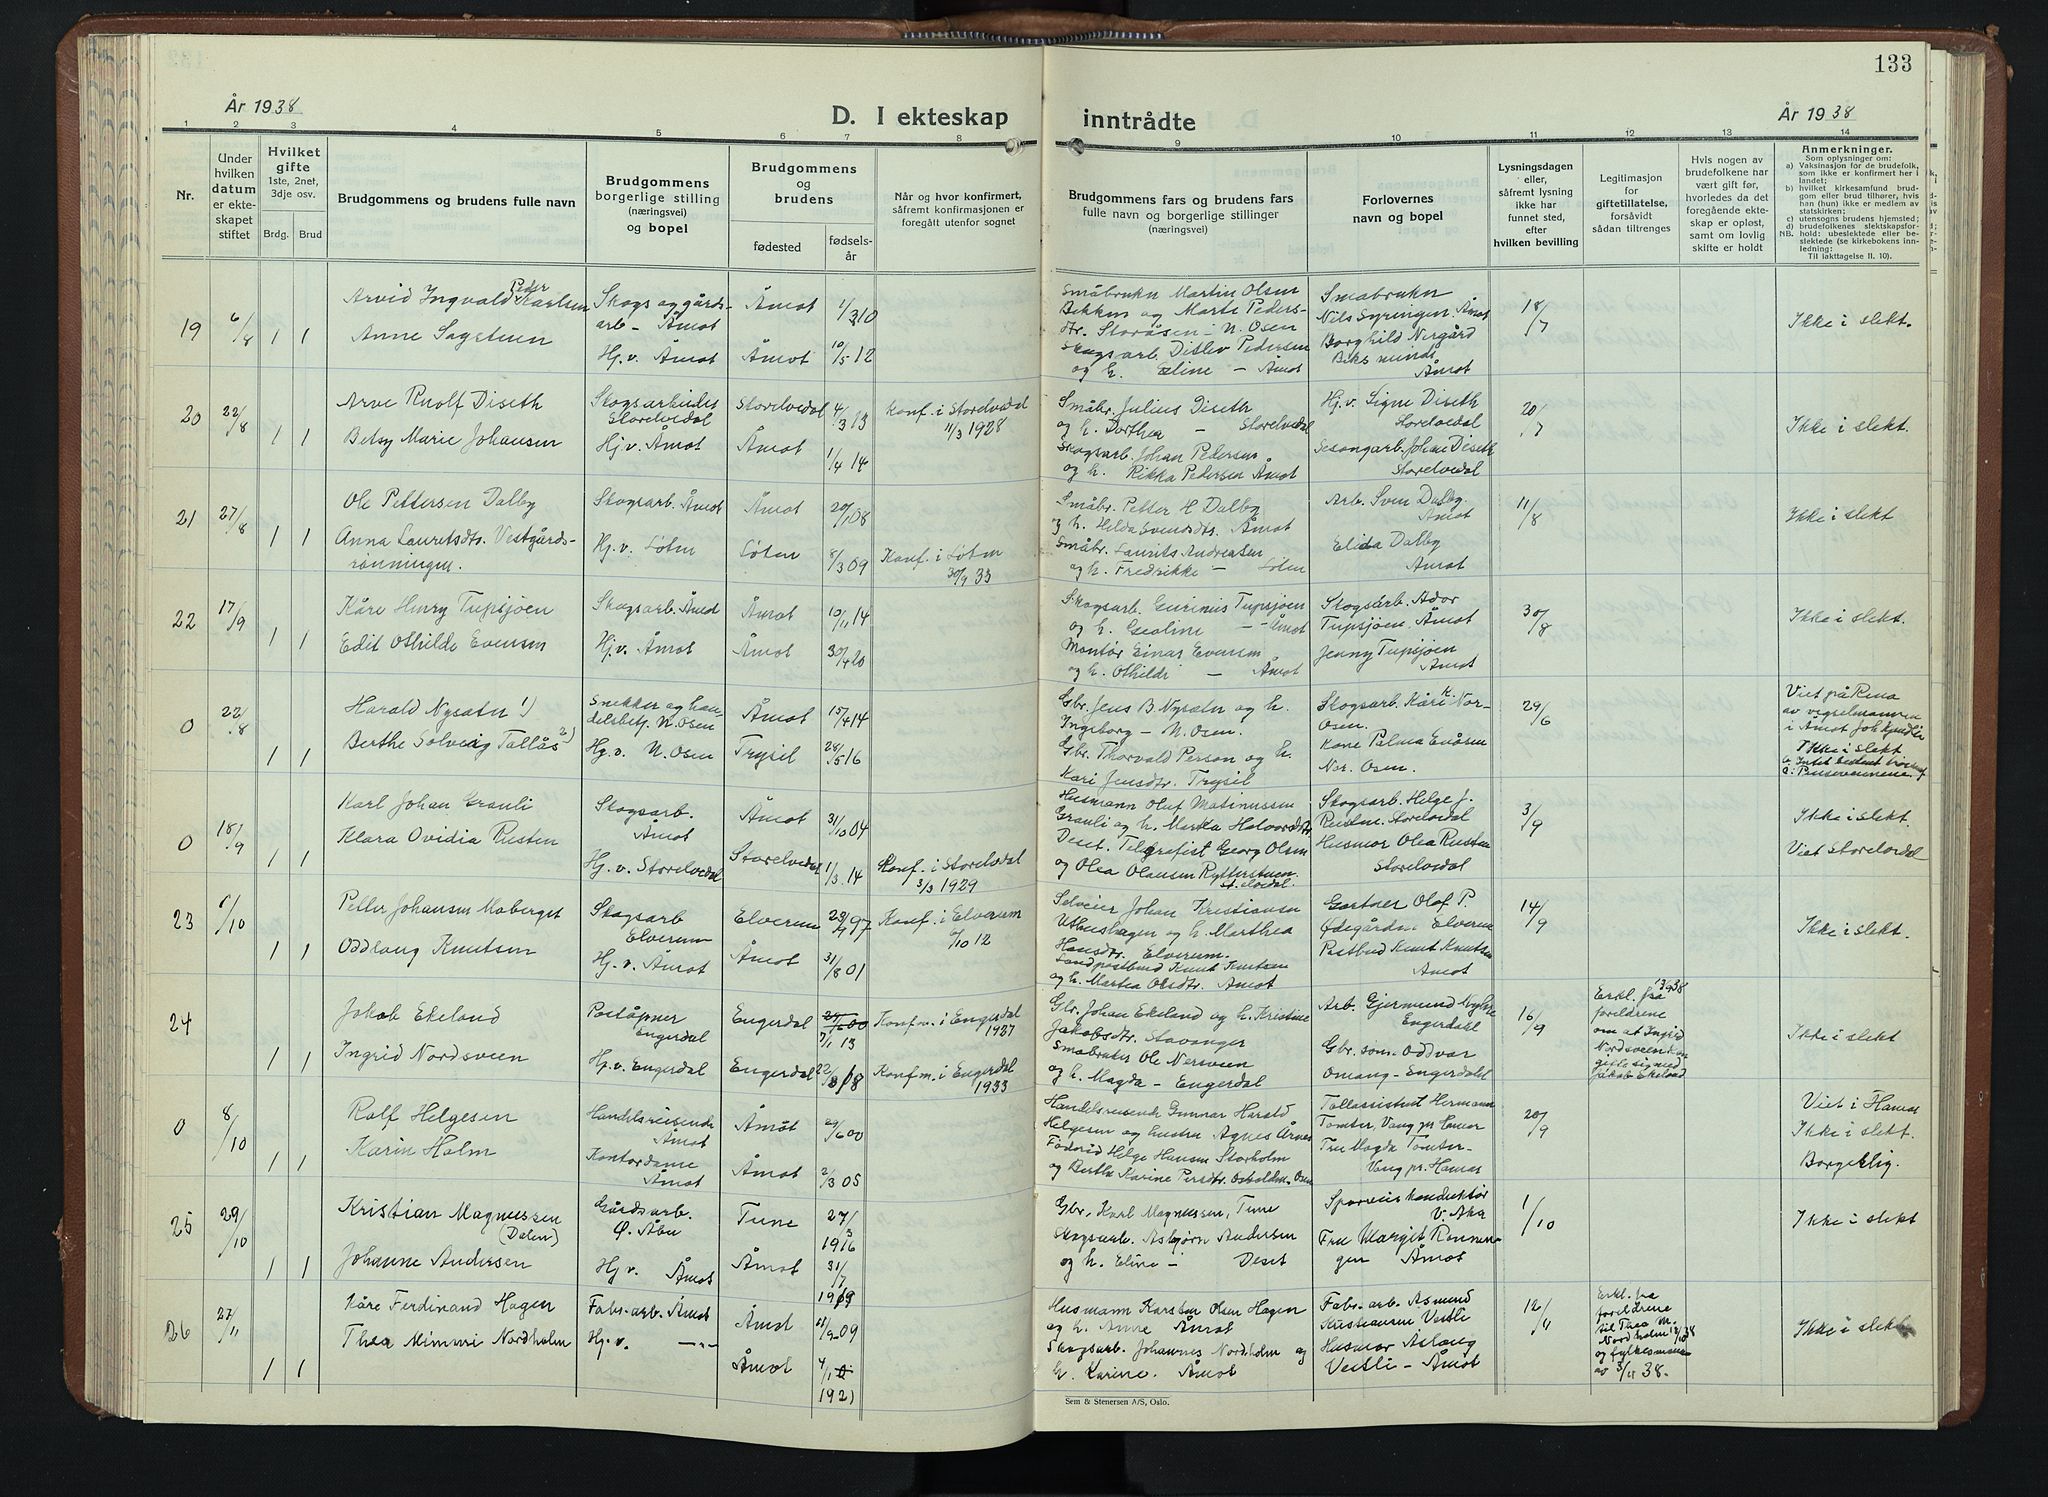 133
År 1938
D. I ekteskap inntrådte
År 1938
1 2 3 4 5 6 7 8 9 10 11 12 13 14
Nr.
Under
hvilken
datum
er ekte-
skapet
stiftet
Hvilket
gifte
1ste, 2net,
3dje osv.
Brdg. Brud
Brudgommens og brudens fulle navn
Brudgommens
borgerlige stilling
(næringsvei)
og bopel
Brudgommens
og
brudens
fødested
fødsels-
år
Når og hvor konfirmert,
såfremt konfirmasjonen er
foregått utenfor sognet
Brudgommens fars og brudens fars
fulle navn og borgerlige stillinger
(næringsvei)
Forlovernes
navn og bopel
Lysningsdagen
eller,
såfremt lysning
ikke har
funnet sted,
efter
hvilken bevilling
Legitimasjon
for
giftetillatelse,
forsåvidt
sådan tiltrenges
Hvis nogen av
brudefolkene har
vært gift før,
hvorledes da det
foregående ekte-
skap er opløst,
samt om lovlig
skifte er holdt
Anmerkninger.
Som oplysninger om:
a) Vaksinasjon for de brudefolk,
som ikke er konfirmert her i
landet;
b) hvilket kirkesamfund brud-
gom eller brud tilhører, hvis
han (hun) ikke er medlem av
statskirken;
c) utensogns brudens hjemsted;
d) brudefolkenes slektskapsfor-
NB. hold: ubeslektede eller be-
slektede (se kirkebokens inn-
ledning:
Til iakttagelse II. 10).
19 6/8 1 1
Arvid Ingvald Peder Karlsen
Anne Sagstuen
Skogs og gårds-
arb - Åmot
Hj. v. Åmot
Åmot 1/3 10
Åmot 10/5 12
Småbruker Martin Olsen
Bekken og Marte Peders-
dtr. Storåsen - N. Osen
Skogsarb. Ditlev Pedersen
og h. Eline - Åmot
Småbruker
Nils Syringen, Åmot
Borghild Nergård
Åmot
18/7
Ikke i slekt.
20 22/8 1 1
Arve Rudolf Diseth
Betsy Marie Johansen
Skogsarbeider
Storelvedal
Hj. v. Åmot
Storelvedal 4/3 13
Åmot 1/4 14
Konf. i Storelvedal
11/3 1928
Småbr. Julius Diseth
og h. Dorthea - Storelvedal
Skogsarb. Johan Pedersen
og h. Rikka Pedersen Åmot
Hj. v. Signe Diseth
Storelvedal
Sesongarb. Johan Diseth
Storelvedal
20/7
Ikke i slekt.
21 27/8 1 1
Ole Pettersen Dalby
Anna Lauritsdtr. Vestgårds-
rønningen.
Skogsarb. Åmot
Hj. v. Løten
Åmot 20/1 08
Løten 8/3 09
Konf. i Løten
30/9 33
Småbr. Petter H Dalby
og h. Hilda Evensdtr. Åmot
Småbr. Laurits Andreasen
og h. Fredrikke - Løten
Arb. Sven Dalby.
Åmot
Elida Dalby
Åmot
11/8
Ikke i slekt
22 17/9 1 1
Kåre Henry Tupsjøen
Edit Othilde Evensen
Skogsarb. Åmot
Hj. v. Åmot
Åmot 10/11 14
Åmot 30/4 20
Skogsarb. Gurinius Tupsjøen
og h. Geoline - Åmot
Montør Einar Evensen
og h. Othilde - Åmot
Skogsarb. Ador
Tupsjøen. Åmot
Jenny Tupsjøen
Åmot
30/8
Ikke i slekt.
0 22/8 1 1
Harald Nysæter 1)
Berthe Solveig Tallås 2)
Snekker og han-
delsbetj. N. Osen
Hj. v. N. Osen
Åmot 15/4 14
Trysil 28/5 16
Gbr. Jens B. Nysæter og h.
Ingeborg - N. Osen.
Gbr. Thorvald Person og h.
Kari Jensdtr. Trysil
Skogsarb. Kåre K. Nor-
Osen.
Kone Palma Enåsen
Nor. Osen.
29/6
Viet på Rena
av vigselmannen
i Åmot
Ikke i slekt
0 18/9 1 1
Karl Johan Grauli
Klara Ovidia Rusten
Skogsarb.
Åmot
Hj. v. Storelvedal
Åmot 31/10 04
Storelvedal 1/3 14
Konf. i Storelvdal
3/3 1929
Husmann Oluf Matinussen
Grauli og h. Martha Halvordsdtr
Deset. Telegrafist Georg Olsen
og Olea Olausen Rytterstuen
St. elvdal.
Skogsarb. Helge J.
Rusten. Storelvdal
Husmor Olea Rusten
Storelvedal
3/9
Ikke i slekt.
Viet Storelvdal
23 1/10 1 1
Petter Johansen Moberget
Oddlaug Knutsen
Skogsarb
Elverum
Hj. v. Åmot
Elverum 23/4 97
Åmot 31/8 01
Konf. i Elverum
6/10 12
Selveier Johan Kristiansen
Uthushagen og h. Marthea
Hansdtr. Elverum.
Landpostbud Knut Knutsen
og h. Martea Olsdtr. Åmot
Gartner Olaf P.
Ødegården Elverum
Postbud Knut Knutsen
Åmot
14/9
Ikke i slekt.
24 1 1
Jakob Ekeland
Ingrid Nordsveen
Poståpner
Engerdal
Hj. v. Engerdal
Engerdal 7/1 13
Engerdal 22/8 18
Konf m. i Engerdal
1927
Konf m. i Engerdal
1933
Gbr. Johan Ekeland og h. Kristine
Jakobsdtr. Stavanger
Småbruker Ole Nersveen
og h. Magda - Engerdal
Arb. Gjermund
Engerdal
Gbr. sønn Oddvar
Omang - Engerdal
16/9
Erkl. fra
foreldrene
om at Ingrid
Nordsveen kan
gifte sig med
Jakob Ekeland
Ikke i slekt
0 8/10 1 1
Rolf Helgesen
Karin Holm
Handelsreisende
Åmot
Kontordame
Åmot
Åmot 29/6 00
Åmot 2/3 05
Handelsreisende Gunnar Harald
Helgesen og hustru Agnes Årnes
Føderåd Helge Hansen Storholm
og Berthe Karine Persdtr. Osen
Tollassistent Hermann
Tomter, Vang pr. Hamar
Fru Magda Tomter-
Vang pr. Hamar
20/9
Viet i Hamar
Ikke i slekt.
Borgerlig.
25 29/10 1 1
Kristian Magnussen
(Dalen)
Johanne Andersen
Gårdsarb.
Ø. Åbu
Hj v. Åmot
Tune 27/3 1916
Åmot 31/7 1919
Gbr. Karl Magnussen, Tune
Skogsarb. Asbjørn Andersen
og h. Eline - Deset
Sporveiskonduktør
V. Aka
Fru Margit Rønnin-
gen Åmot
1/10
Ikke i slekt
26 27/11 1 1
Kåre Ferdinand Hagen
Thea Mimmi Nordholm
Fabr. arb. Åmot
Hj. v. -"-
Åmot 11/9 09
Åmot 4/1 1921
Husmann Karsten Olsen Hagen
og h. Anne Åmot
Skogsarb. Johannes Nordholm og
h. Karine. Åmot
Fabr. arb. Asmund
Kristiansen Vestli
Husmor Aslaug
Vestli - Åmot
12/11
Erkl. fra
foreldrene
til Thea M.
Nordholm 12/10 38
og fylkesmannen
av 3/11 38.
Ikke i slekt
Sem & Stenersen A/S, Oslo.